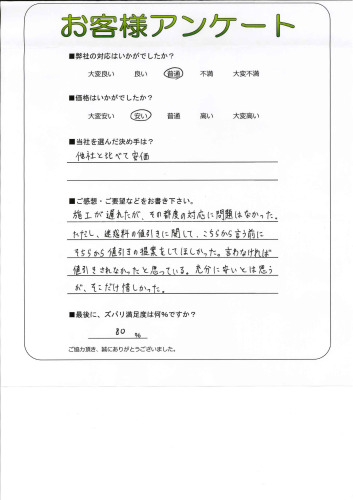 お客様アンケート
■弊社の対応はいかがでしたか?
大変良い 良い 普通 不満 大変不満
■価格はいかがでしたか?
大変安い 安い 普通 高い 大変高い
■当社を選んだ決め手は?
他社と比べて安価
■ご感想・ご要望などをお書き下さい。
施工が遅れたが、その都度の対応に問題はなかった。
ただし、迷惑料の値引きに関して、こちらから言う前に
そちらから値引きの提案をしてほしかった。言わなければ
値引きされなかったと思っている。充分に安いとは思う
が、そこだけ惜しかった。
■最後に、ズバリ満足度は何%ですか?
80 %
ご協力頂き、誠にありがとうございました。